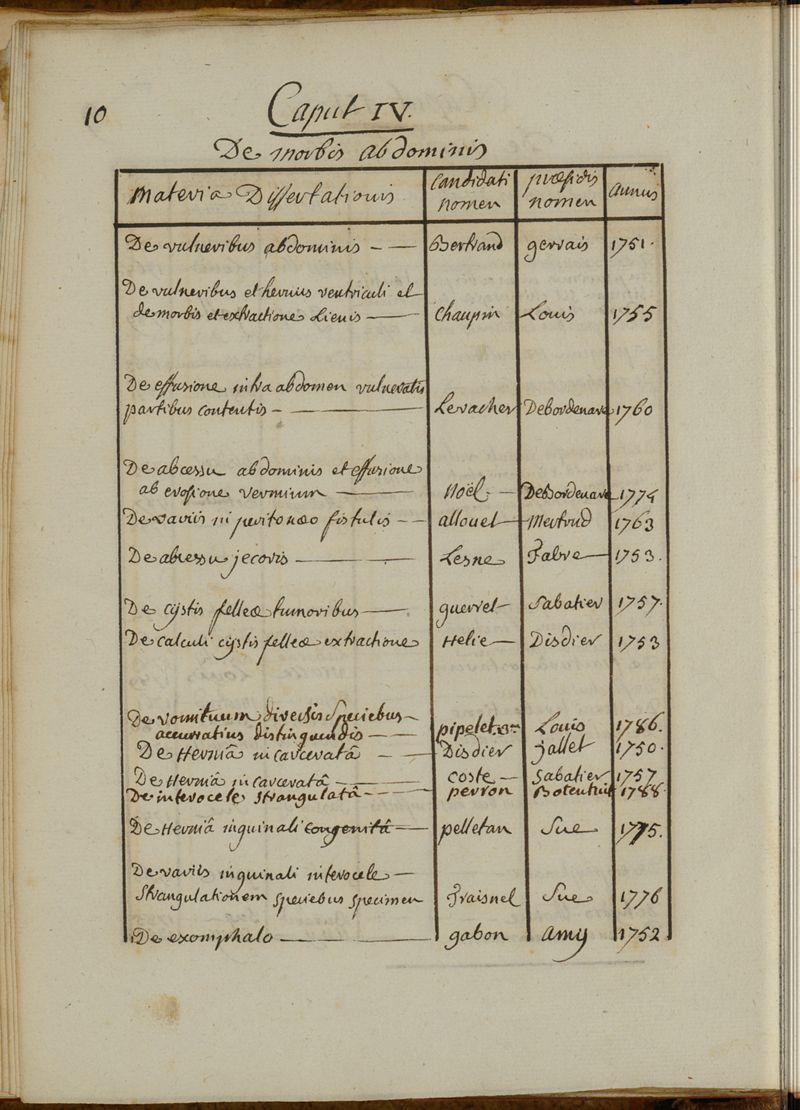 10
Caput IV.
De morbis abdominis
Materia Dissertationis Candidati nomen præsidis nomen annus
De vulneribus abdominis - — Bertrand gervais 1751.
De vulneribus et herniis ventriculi et
de morbis et extractione Lienis — Chaupin Louis 1755
De effusione intra abdomen vulneratis
partibus contentis - — Levacher Debordenave 1760
De abcessu abdominis et effusione
ab erosione vermium — Noël - — DeBordenave 1774
De variis in peritonæo fistulis - - allouel — Mertrud 1763
De abcessu jecoris — Lesne Fabre — 1753.
De cystis felleæ tumoribus — guerret — Sabatier 1757.
De calculi cystis felleæ extractione Helie — Disdier 1753
De vomituum diversis Speciebus
accuratius distinguendis - — pipelet Louis 1786.
De Herniâ incarceratâ - — Disdier jallet 1750.
De Herniâ incarceratâ - — coste — Sabatier 1757
De interocele strangulatâ - - - perron Botentuit 1788.
De Herniâ inguinali congenitâ — pelletan Sue 1775.
De variis inguinali interocele —
Strangulationem speciebus specimen Fraisnel Sue 1776
De exomphalo — gabon amy 1752